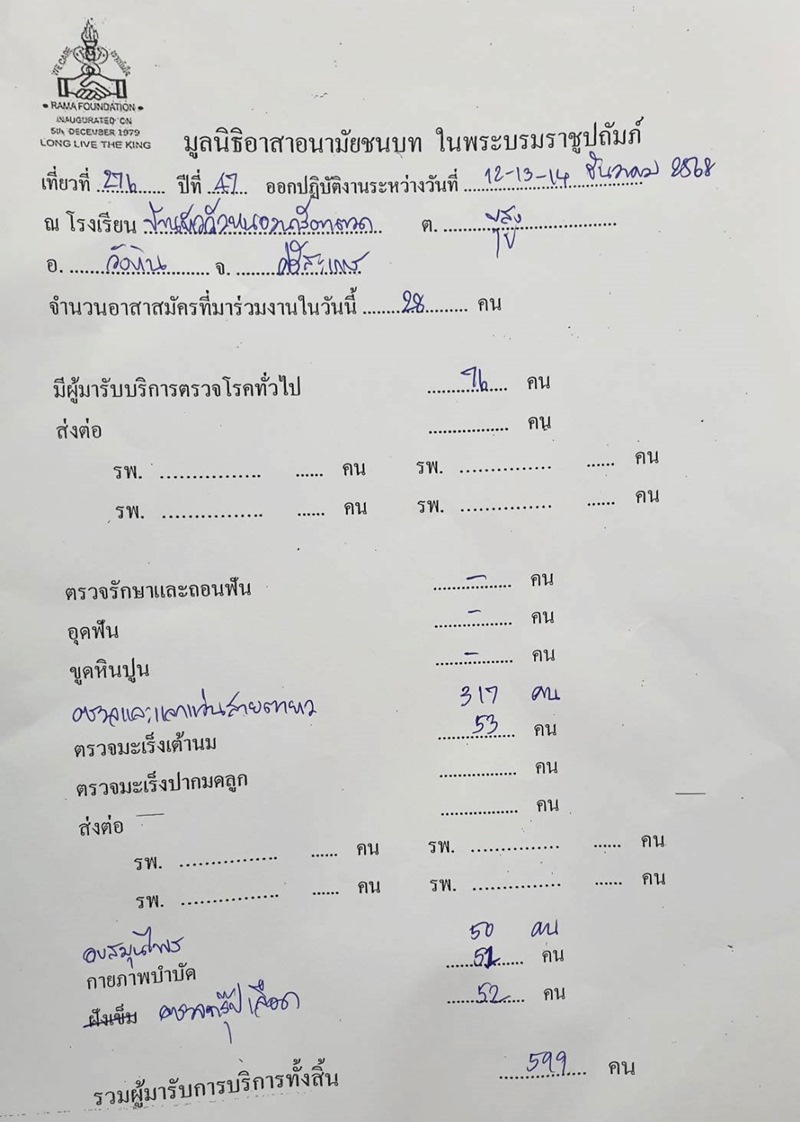 WE CARE
RAMA FOUNDATION
INAUGURATED ON
5th DECEMBER 1979
LONG LIVE THE KING
มูลนิธิอาสาอนามัยชนบท ในพระบรมราชูปถัมภ์
เที่ยวที่ 276 ปีที่ 47 ออกปฏิบัติงานระหว่างวันที่ 12-13-14 ธันวาคม 2568
ณ โรงเรียน ต.
อ. วังหิน จ. ศรีสะเกษ
จำนวนอาสาสมัครที่มาร่วมงานในวันนี้ 28 คน
มีผู้มารับบริการตรวจโรคทั่วไป 76 คน
ส่งต่อ คน
รพ. คน รพ. คน
รพ. คน รพ. คน
ตรวจรักษาและถอนฟัน - คน
อุดฟัน - คน
ขูดหินปูน - คน
ตรวจและแจกแว่นสายตายาว 317 คน
ตรวจมะเร็งเต้านม 53 คน
ตรวจมะเร็งปากมดลูก คน
ส่งต่อ คน
รพ. คน รพ. คน
รพ. คน รพ. คน
อบสมุนไพร 50 คน
กายภาพบำบัด 51 คน
ฝังเข็ม ตรวจกรุ๊ปเลือด 52 คน
รวมผู้มารับการบริการทั้งสิ้น 599 คน